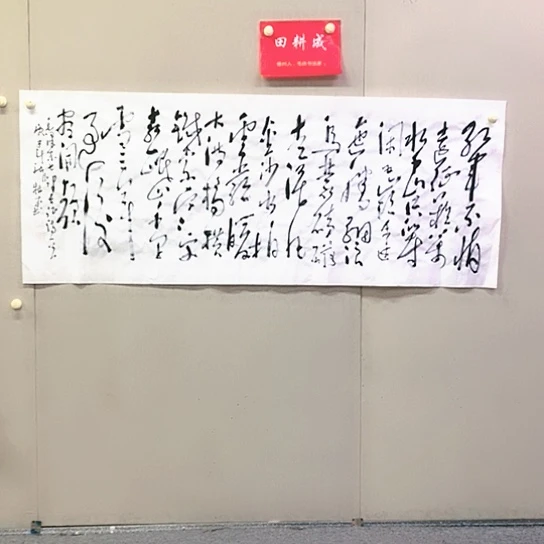 田耕
红军不怕
远征难萬
水千山只等
闲五岭逶迤
腾细浪
乌蒙磅礴
走泥丸
金沙水拍
雲崖暖
大渡橋横
铁索寒更
喜岷山千里
雪三军
过后
尽開颜